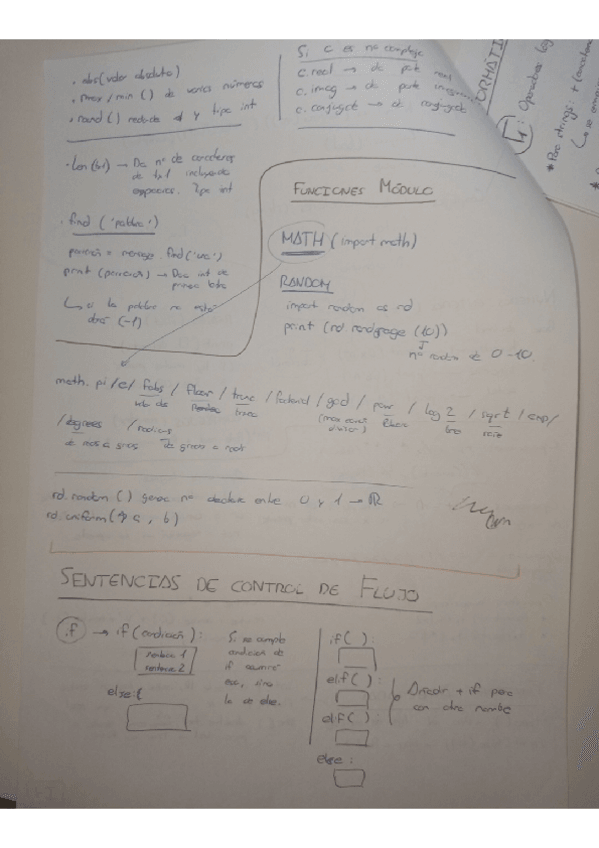 . abs(valor absoluto)
. max/min () de varios números
. round() redondea y tipo int
Si c es no complejo
c.real → da parte real
c.imag → da parte imaginaria
c.conjugate → da conjugate
. Len(txt) → Da nº de caracteres
de txt incluyendo
espacios. Tipo int
. find ('palabra')
posición = mensaje.find('una')
print (posición) → Da int de
↳ si la palabra no está
dará (-1)
FUNCIONES MÓDULO
MATH (import math)
RANDOM
import random as rd
print (rd randrange (10))
nº random de 0-10.
math. pi /e/ fabs / floor / trunc / factorial / gcd / pow / log 2 / sqrt / exp/
/degrees /radians
de rads a grados De grados a rad
rd.random () genera nº decimal entre 0 y 1 → ℝ
rd.uniform( a, b)
SENTENCIAS DE CONTROL DE FLUJO
if → if (condición):
sentencia 1
sentencia 2
else:
Si se cumple
condición de
if
eso, sino
lo de else.
if( ):
elif( ):
elif( ):
else:
Añadir + if pero
con otro nombre
ORMÁTI
: Operadores log
* Para strings: + (concatena